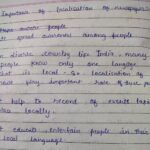 Importance of localisation of newspaper
aware people
great awareness among people
diverse country like India, many
people know only one language
that is local. So localisation of
very important role of
help to record of event
also locally.
educate, entertain people in their
local language